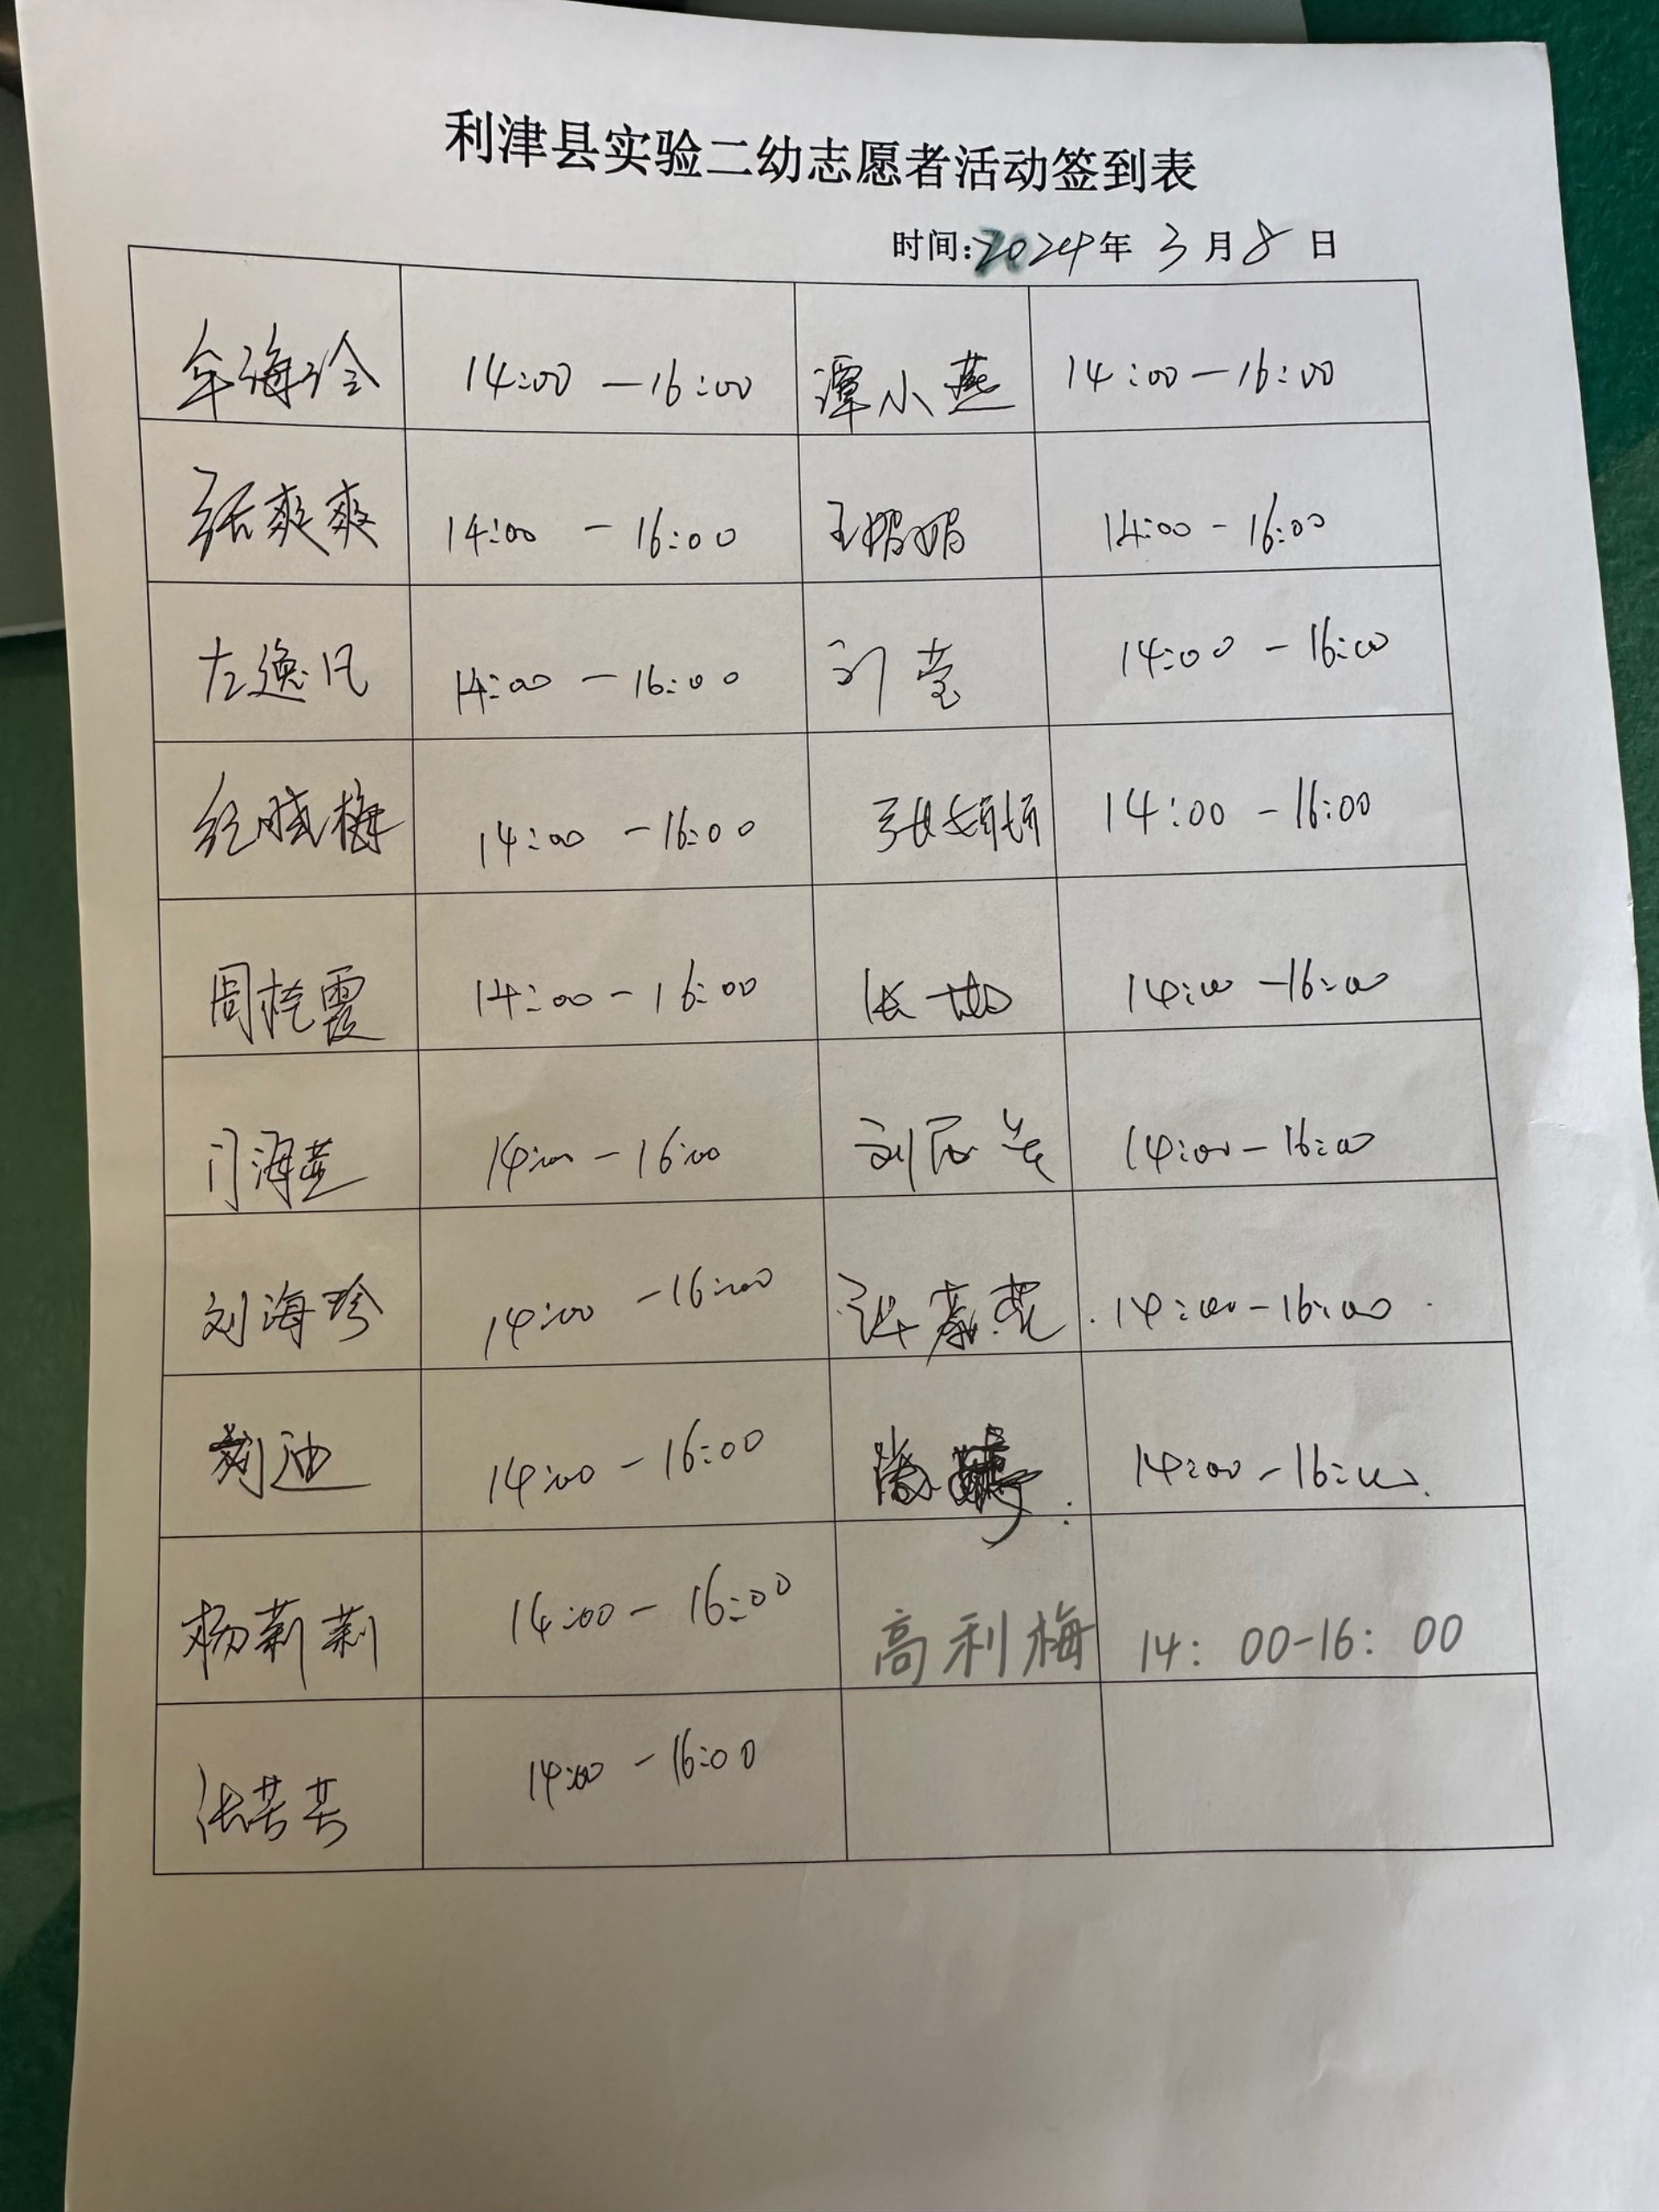 利津县实验二幼志愿者活动签到表
时间:2024年 3月8日
牟海玲 14:00 - 16:00 谭小燕 14:00 - 16:00
张爽爽 14:00 - 16:00 王娟娟 14:00 - 16:00
左逸凡 14:00 - 16:00 刘莹 14:00 - 16:00
纪晓梅 14:00 - 16:00 张娟娟 14:00 - 16:00
周桂霞 14:00 - 16:00 14:00 - 16:00
门海燕 14:00 - 16:00 14:00 - 16:00
刘海珍 14:00 - 16:00 14:00 - 16:00
刘迪 14:00 - 16:00 14:00 - 16:00
杨莉莉 14:00 - 16:00 高利梅 14:00-16:00
张芳芳 14:00 - 16:00